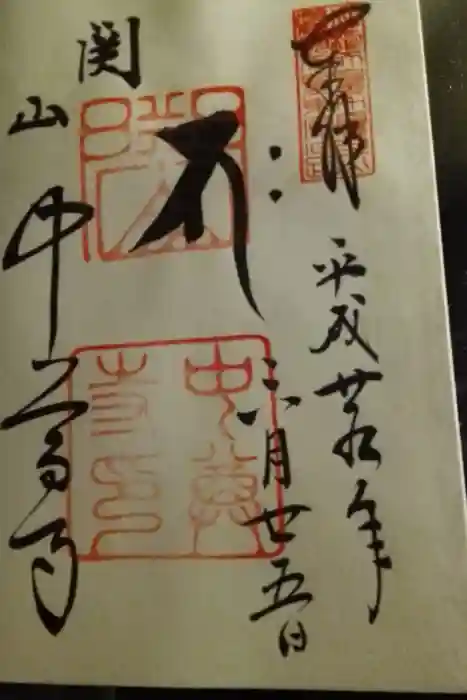 奉拝
平成廿九年
六月廿五日
関山
中尊寺
中尊寺印